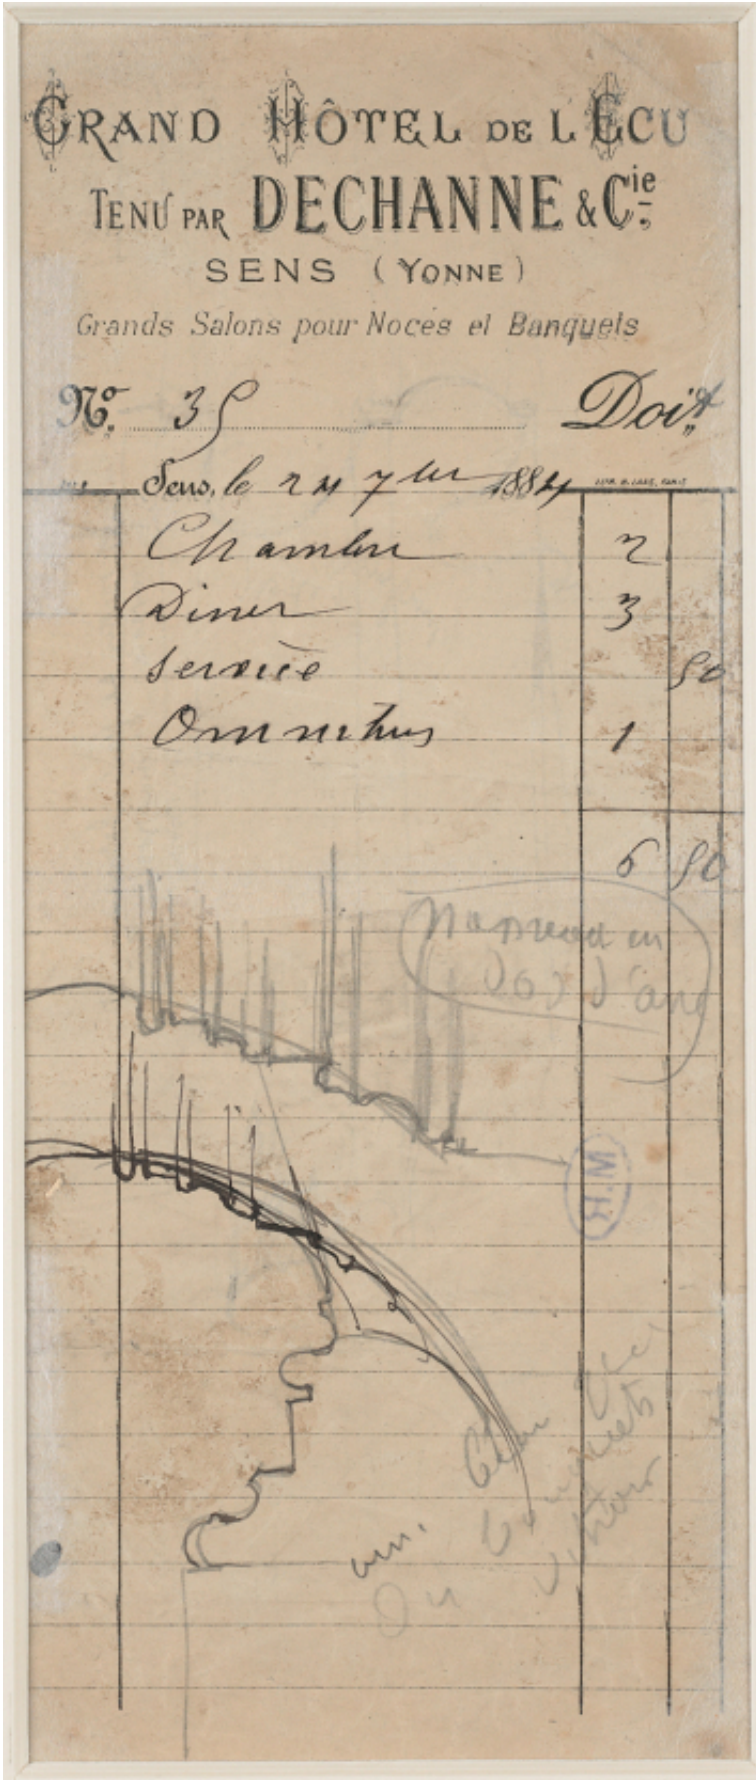 GRAND HÔTEL DE L'ECU
TENU PAR DECHANNE & Cie.
SENS (YONNE)
Grands Salons pour Noces et Banquets
No. 35 Doit
Sens, le 24 7bre 1884
Chambre 2
Diner 3
Service 50
Omnibus 1
6 50
en
dos d'ane